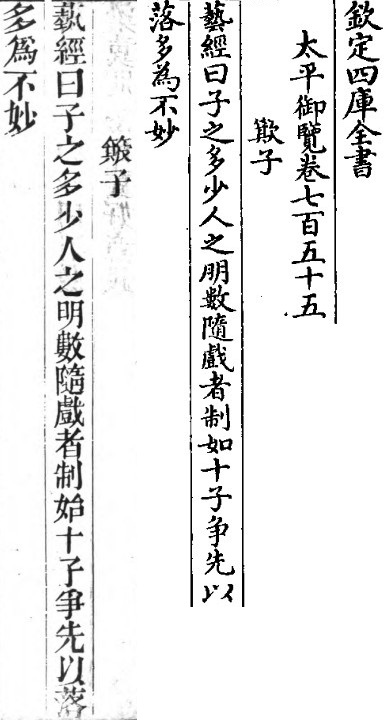 欽定四庫全書
太平御覽卷七百五十五
欺子
藝經曰子之多少人之明數隨戲者制如十子爭先以
落多為不妙
子
藝經曰子之多少人之明數隨戲者制始十子爭先以落
多爲不妙